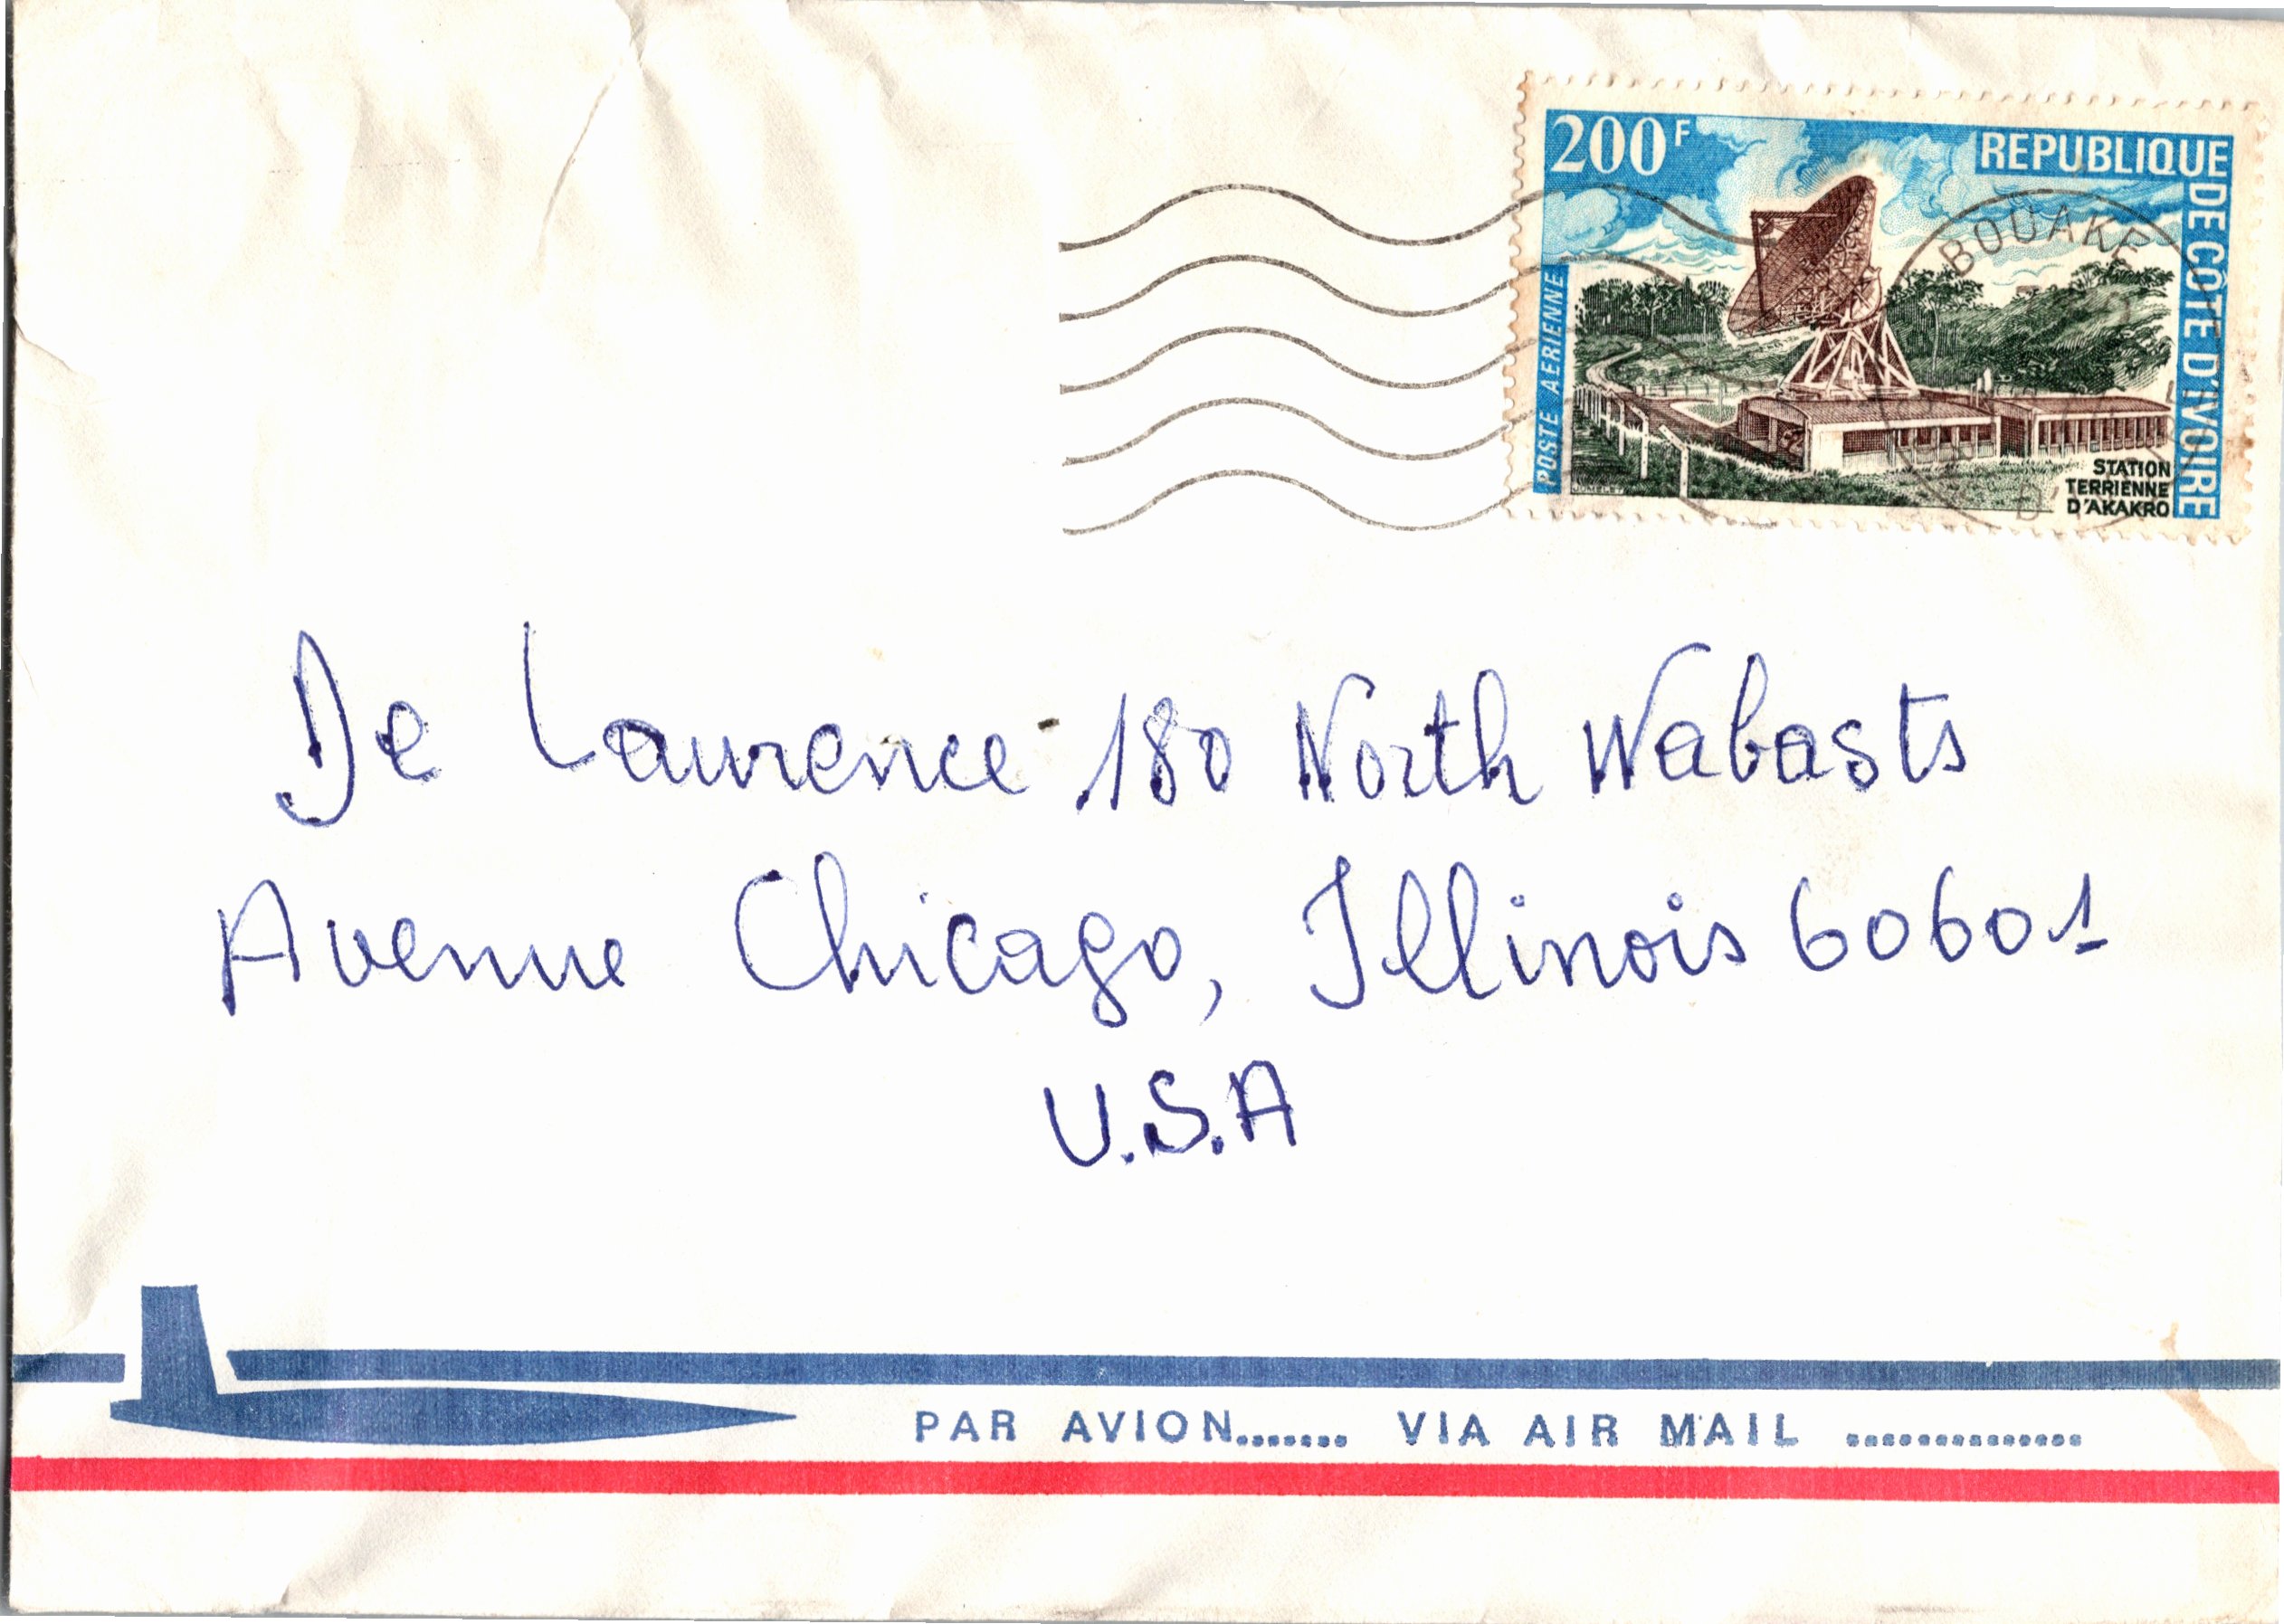 200F
REPUBLIQUE
DE CÔTE D'IVOIRE
POSTE AERIENNE
BOUAKE
STATION
TERRIENNE
D'AKAKRO
De Laurence - 180 North Wabasts
Avenue Chicago, Illinois 60601
U.S.A
PAR AVION....... VIA AIR MAIL ..............